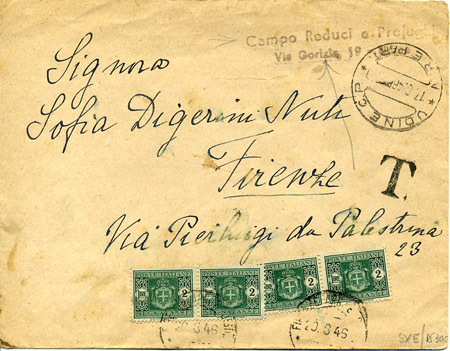 Campo Reduci e Profughi
Via Gorizia 19
UDINE C.P.
Signora
Sofia Digerini Nuti
Firenze
T.
Via Pierluigi da Palestrina
23
POSTE ITALIANE
2
POSTE ITALIANE
2
POSTE ITALIANE
2
POSTE ITALIANE
2
20.6.46
20.6.46